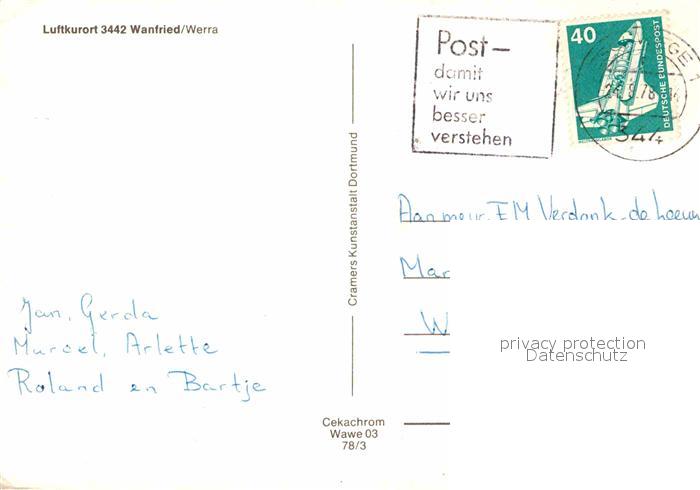 Luftkurort 3442 Wanfried/Werra
Post-
damit
wir uns
besser
verstehen
40
DEUTSCHE BUNDESPOST
344
Cramers Kunstanstalt Dortmund
Aan mevr. EM Verdonk-de
Mar
W
privacy protection
Datenschutz
Jan, Gerda
Marcel, Arlette
Roland en Bartje
Cekachrom
Wawe 03
78/3